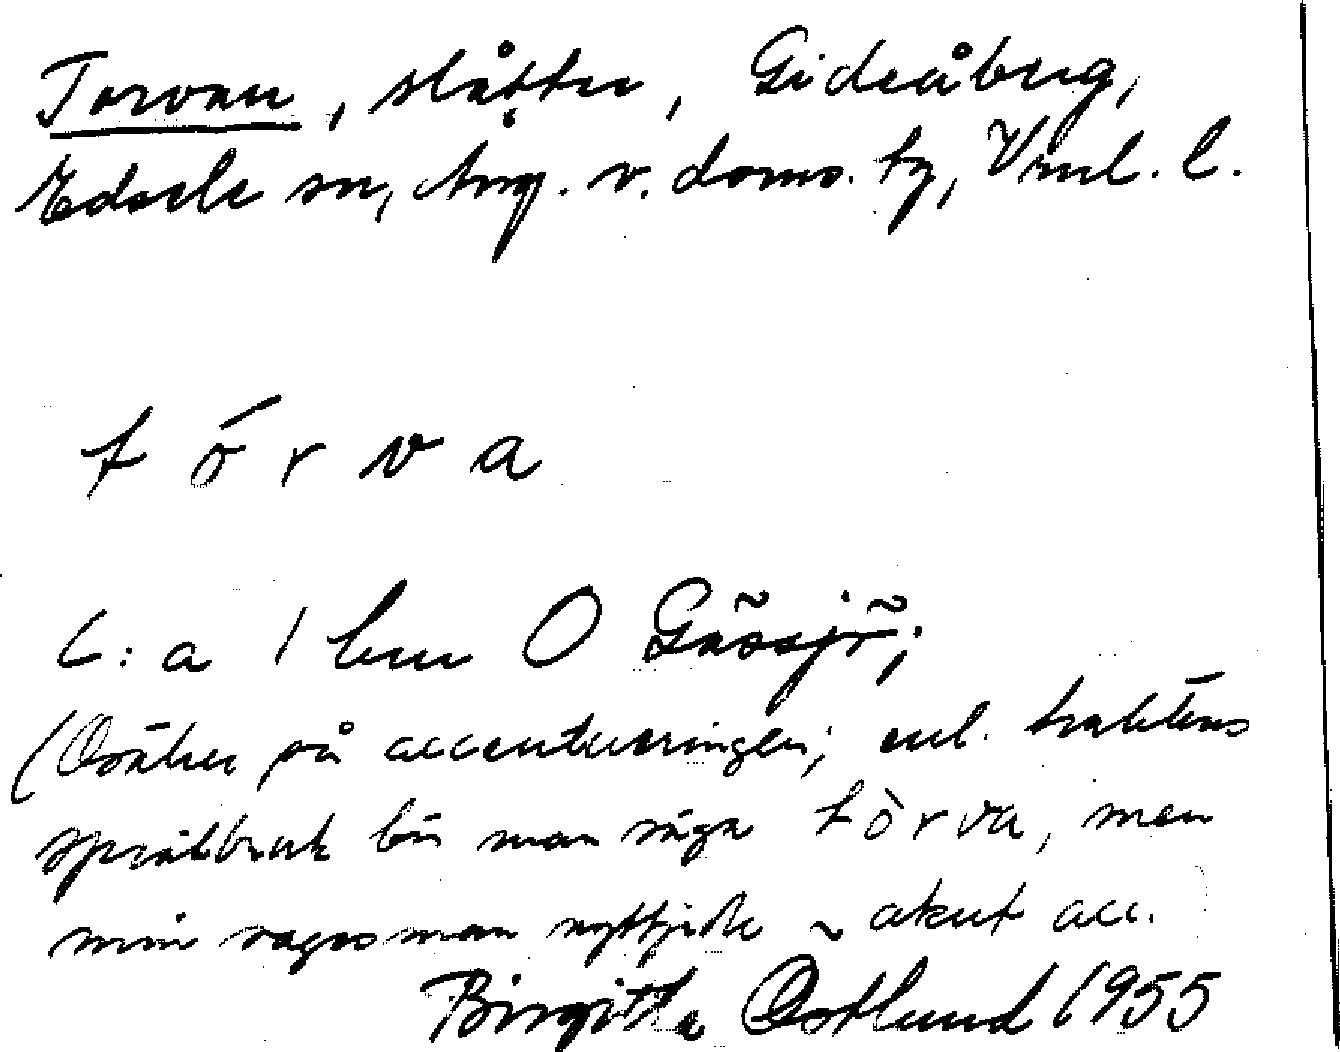 Torvan, slåtter, Gideåberg,
Edsele sn, Ång. v. doms. tg, Vnl. l.
t ó r v a
C:a 1 km O Gåssjö;
(Osäker på accentueringen; enl. traktens
språkbruk bör man säga tòrva, men
min sagesman nyttjade ~ akut acc.
Birgitta Östlund 1955